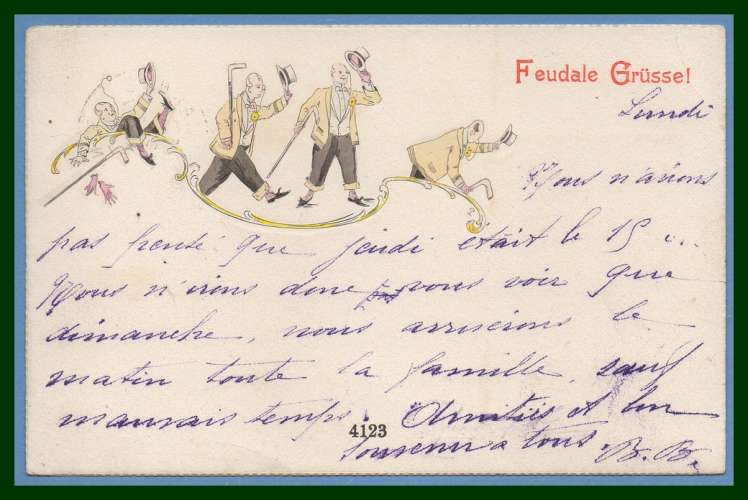 Feudale Grüsse!
Lundi
Nous n'avions
pas pensé que jeudi était le 15
Nous n'irons donc vous voir que
dimanche, nous arriverons le
matin toute la famille, sauf
mauvais temps. Amitiés et bon
4123
souvenir à tous. B. B.